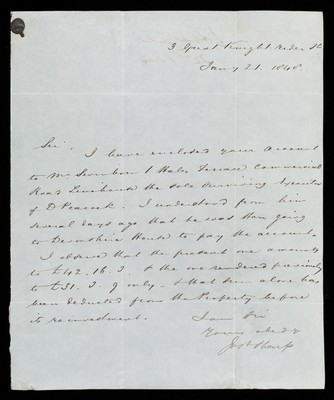 3 Great Knight Rider St
Jany 21. 1848
Sir,
I have enclosed your Account
to Mr 1 Hales Terrace Commercial
Road Limehouse the sole surviving Executor
of D Peacock. I understood from him
several days ago that he was then going
to Devonshire House to pay the account.
I observe that the present one amounts
to £42. 16. 3. & the one rendered previously
to £31. 3. 9 only. & that sum alone has
been deducted from the Property before
its reinvestment.
I am Sir
Yours obedly
Jos Sharp